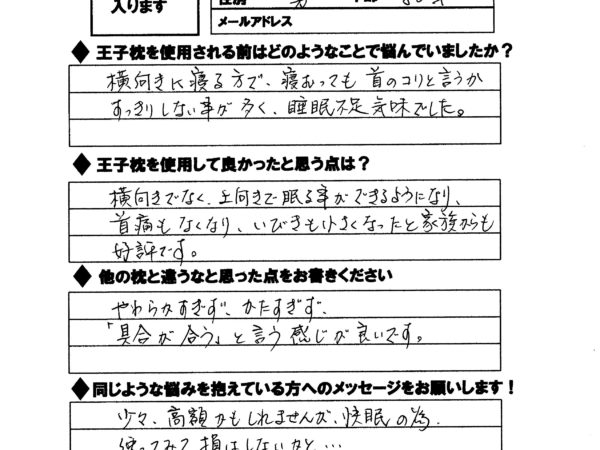 入ります
メールアドレス
◆ 王子枕を使用される前はどのようなことで悩んでいましたか?
横向きに寝る方で、寝むっても首のコリと言うか
すっきりしない事が多く、睡眠不足気味でした。
◆ 王子枕を使用して良かったと思う点は?
横向きでなく、上向きで眠る事ができるようになり、
首痛もなくなり、いびきも小さくなったと家族からも
好評です。
◆ 他の枕と違うなと思った点をお書きください
やわらかすぎず、かたすぎず、
「具合が合う」と言う感じが良いです。
◆ 同じような悩みを抱えている方へのメッセージをお願いします!
少々、高額かもしれませんが、快眠の為、
使ってみて損はしないかと…